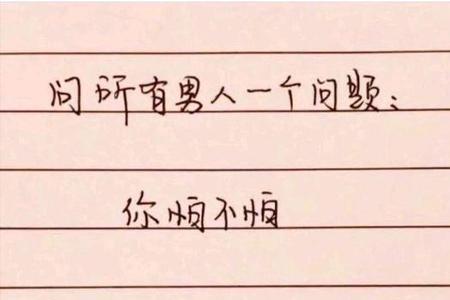 问所有男人一个问题：
你怕不怕